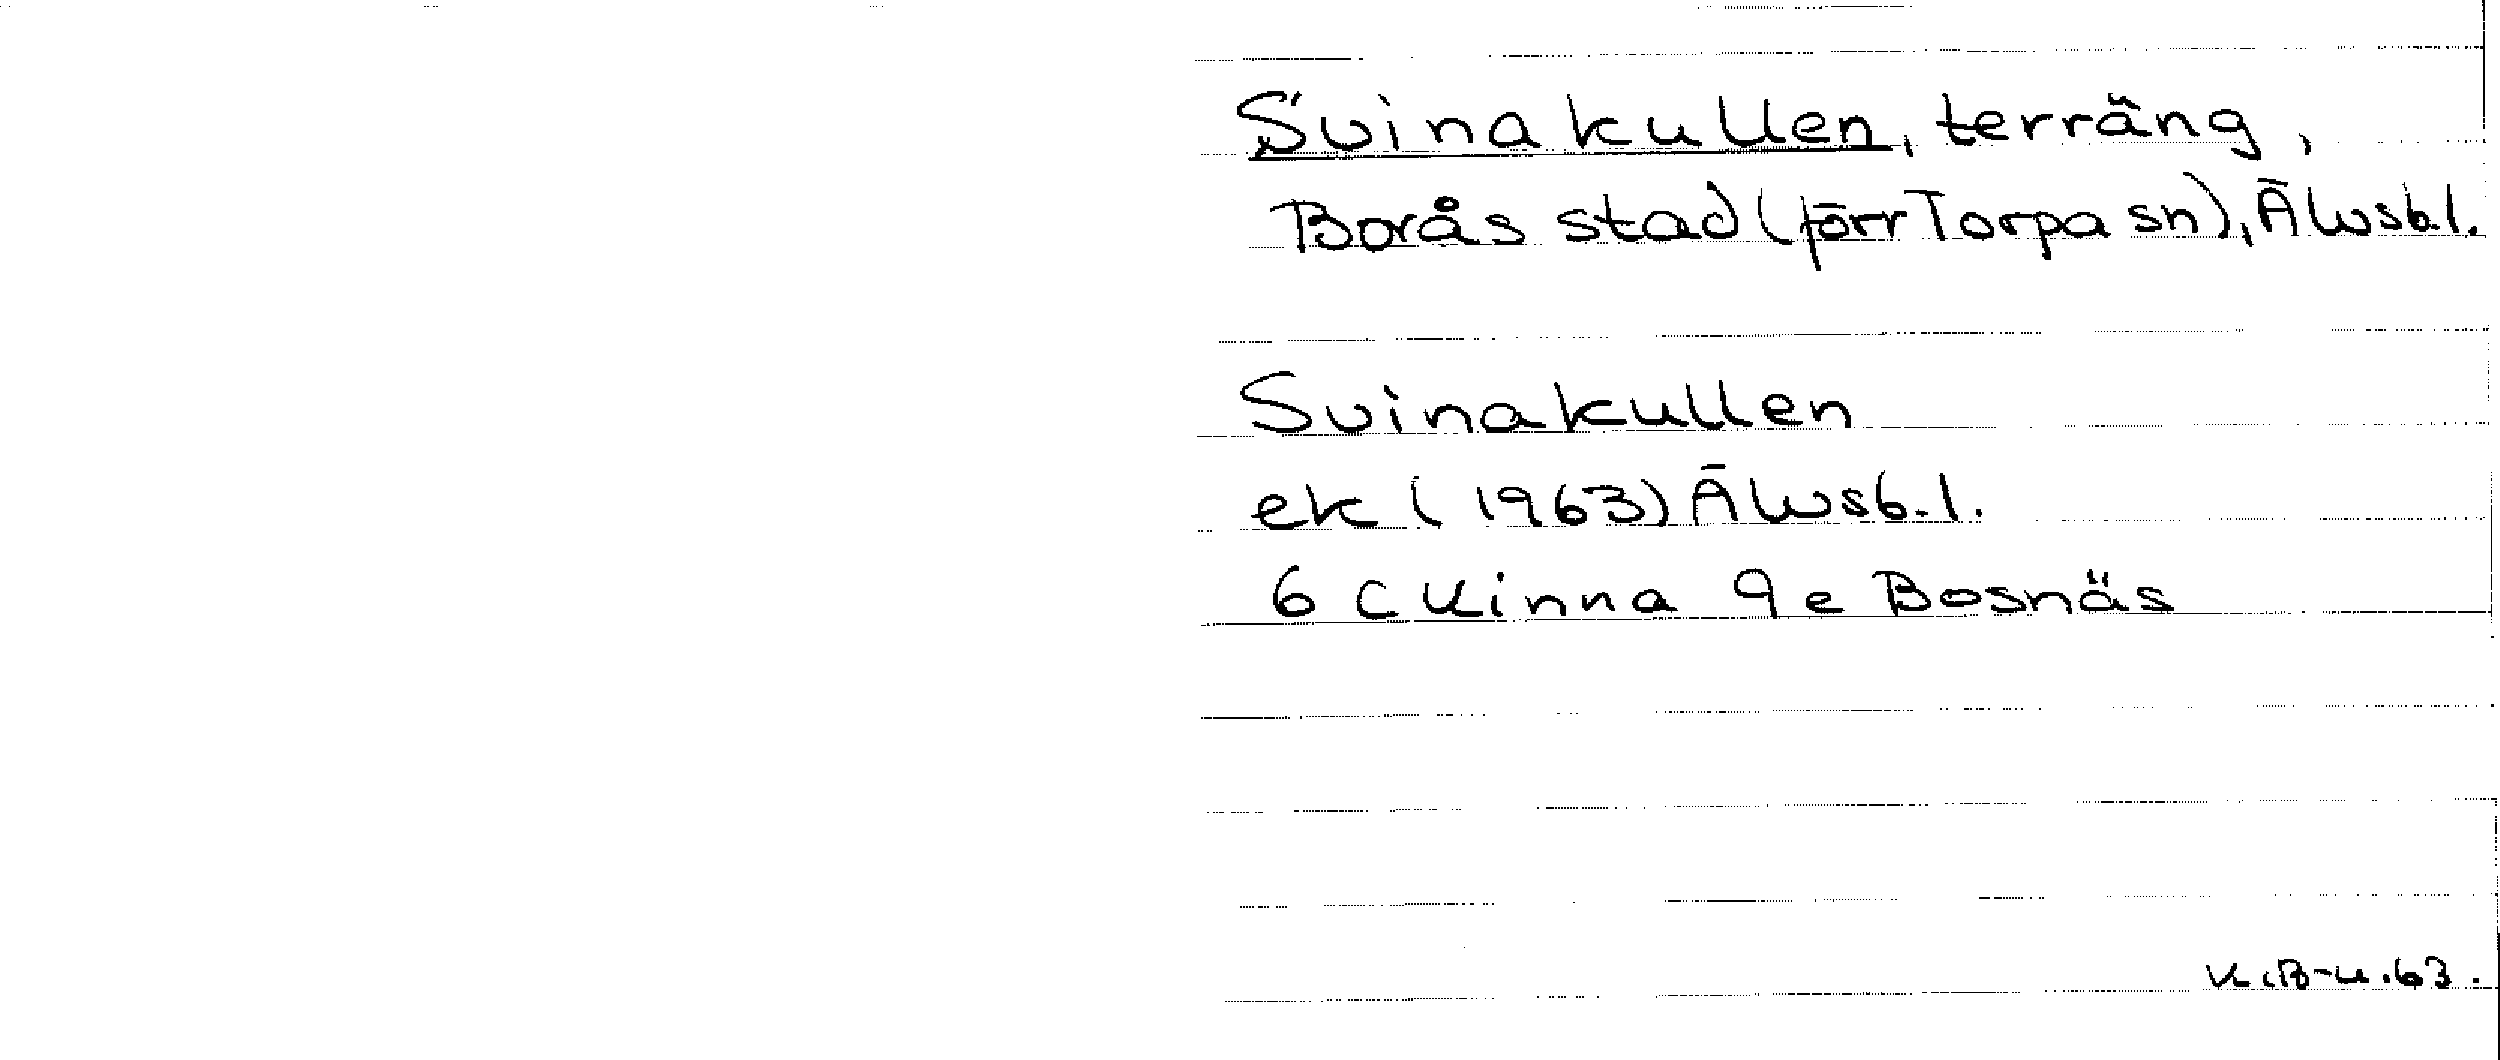 Svinakullen, terräng,
Borås stad (förr Torpa sn), Älvsb.l.
Svinakullen
ek (1963) Älvsb.l.
6 C Kinna 9 e Bosnäs